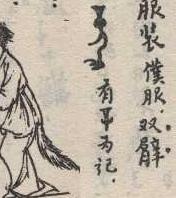 服装僕服.双臂.
有耳为记.